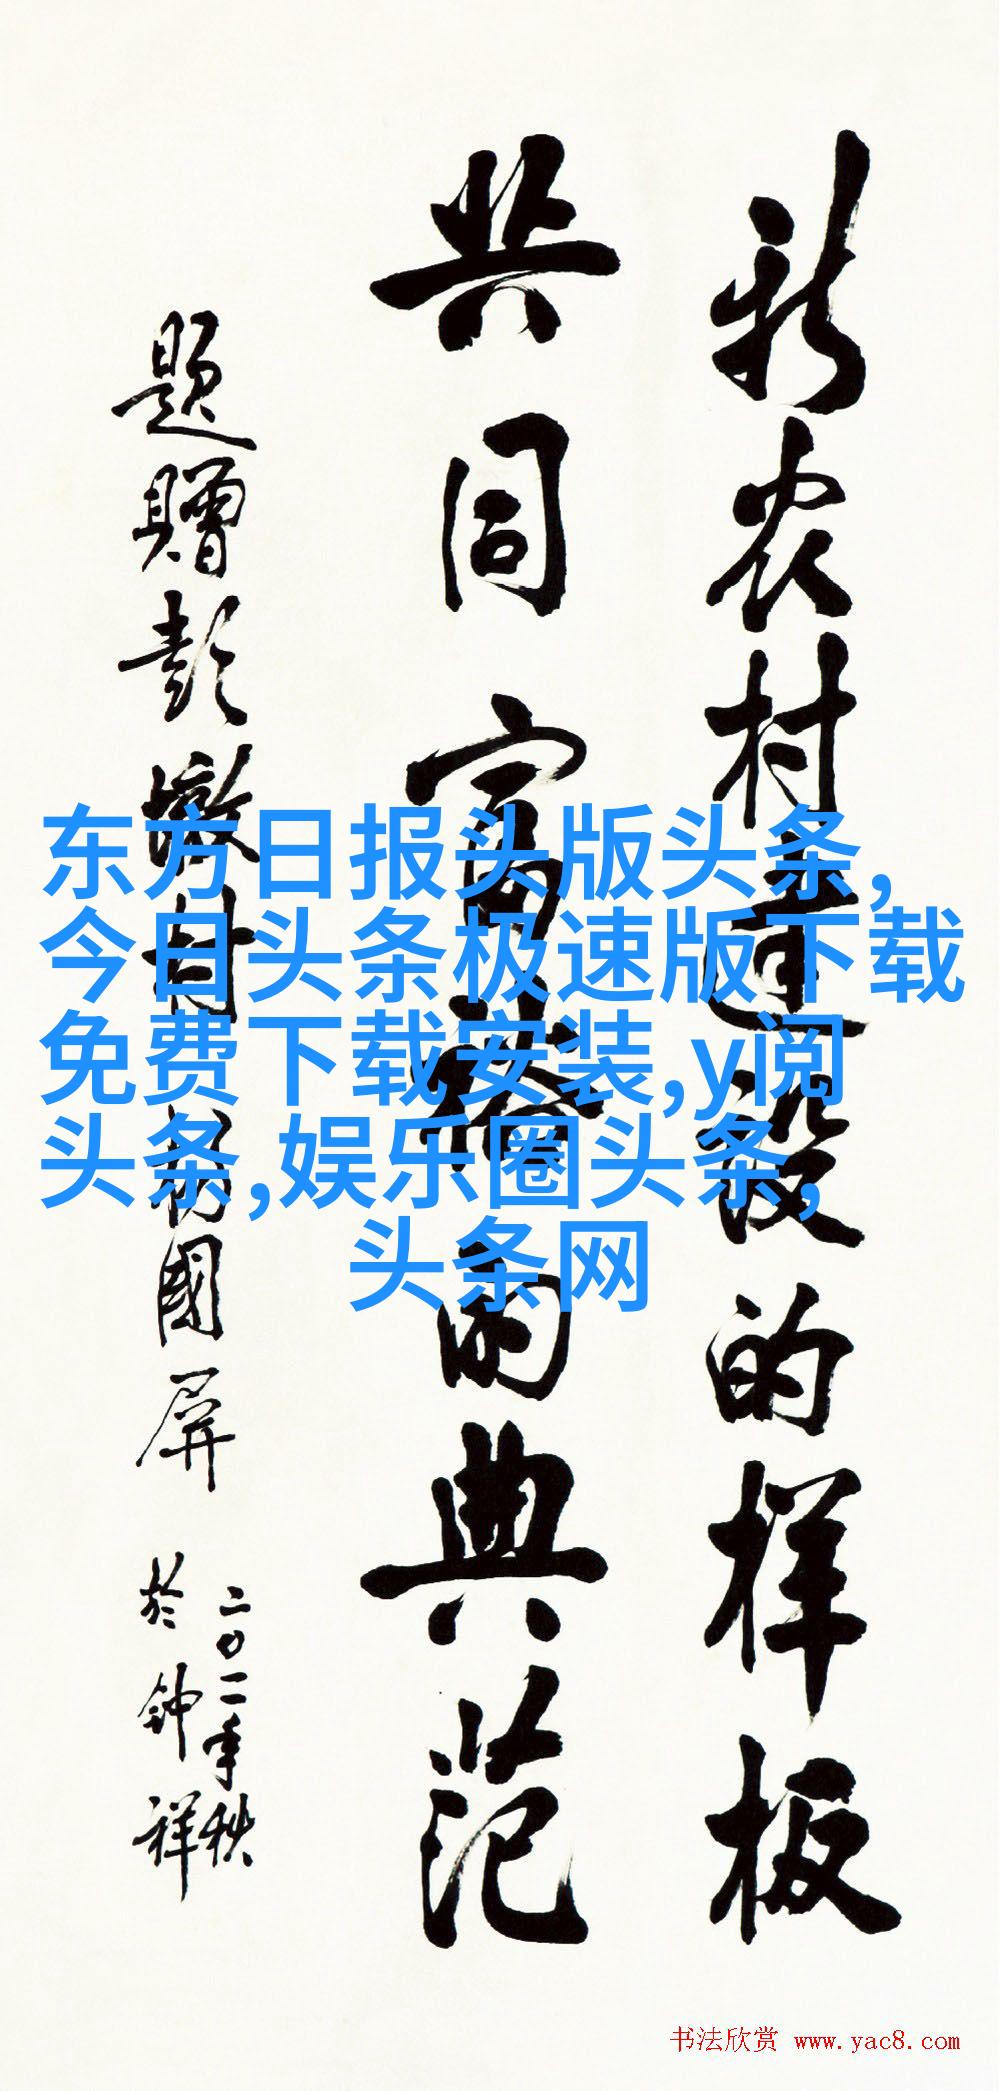 新农村建设的样板
共同富裕的典范
题赠彭墩村 國屏
二〇一一年秋
於钟祥
东方日报头版头条,
今日头条极速版下载
免费下载安装,y阅
头条,娱乐圈头条,
头条网
书法欣赏 www.yac8.com